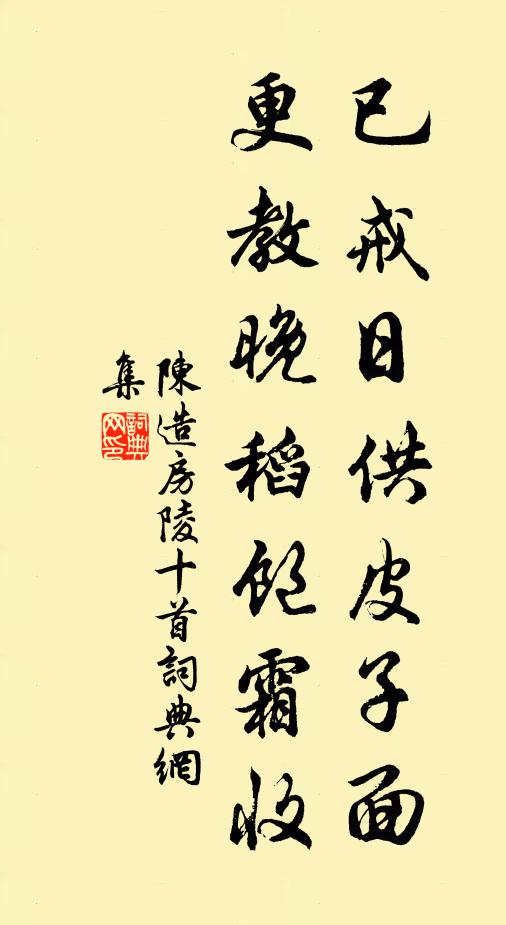 已戒日供皮子面
更教晚稻飽霜收
陳造房陵十首詞典網
集
詞典网印